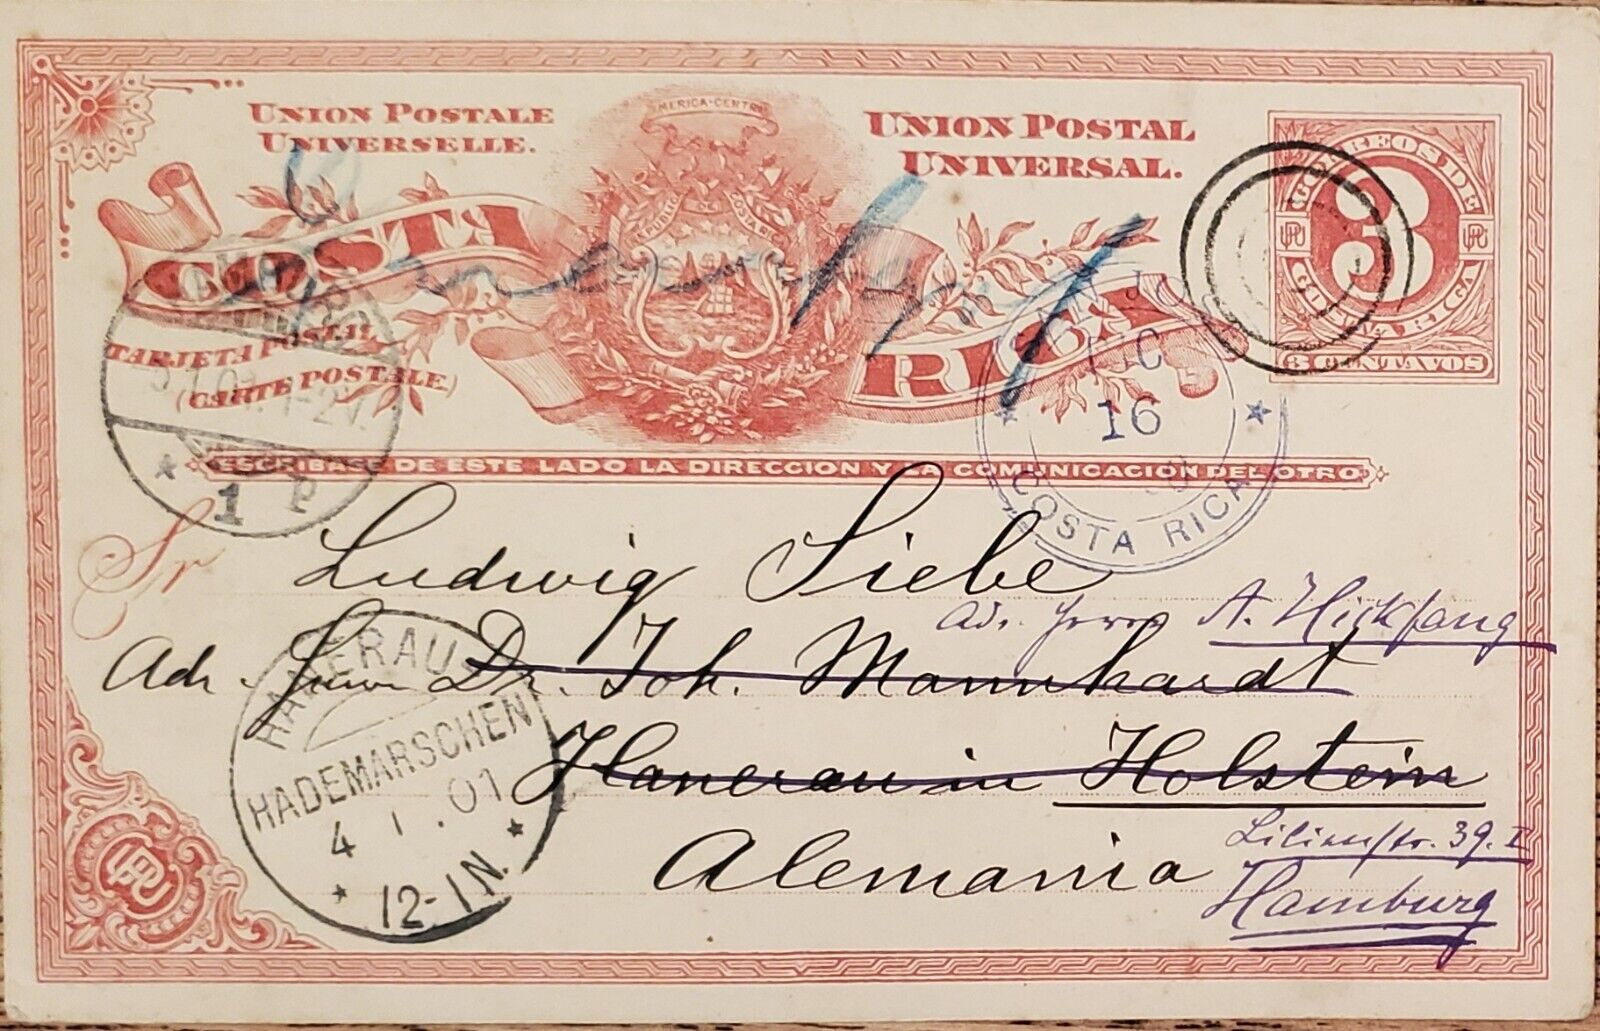 UNION POSTALE
UNIVERSELLE.
UNION POSTAL
UNIVERSAL.
AMERICA-CENTRAL
REPUBLICA DE COSTA RICA
COSTA
RICA
CORREOS DE
3
COSTA RICA
3 CENTAVOS
TARJETA POSTAL
(CARTE POSTALE.)
HAMBURG
5.1.01. 1-2N.
* 1 P
DIC
16
COSTA RICA
ESCRIBASE DE ESTE LADO LA DIRECCION Y LA COMUNICACION DEL OTRO
Sr Ludwig Siebe
Adr. Herrn A. Hickfang
Adr. Herrn Dr. Joh. Mannhardt
Hanerau in Holstein
Alemania
Lilienstr. 39. I
Hamburg
HANERAU
HADEMARSCHEN
4 1. 01
* 12-1N. *
UPU